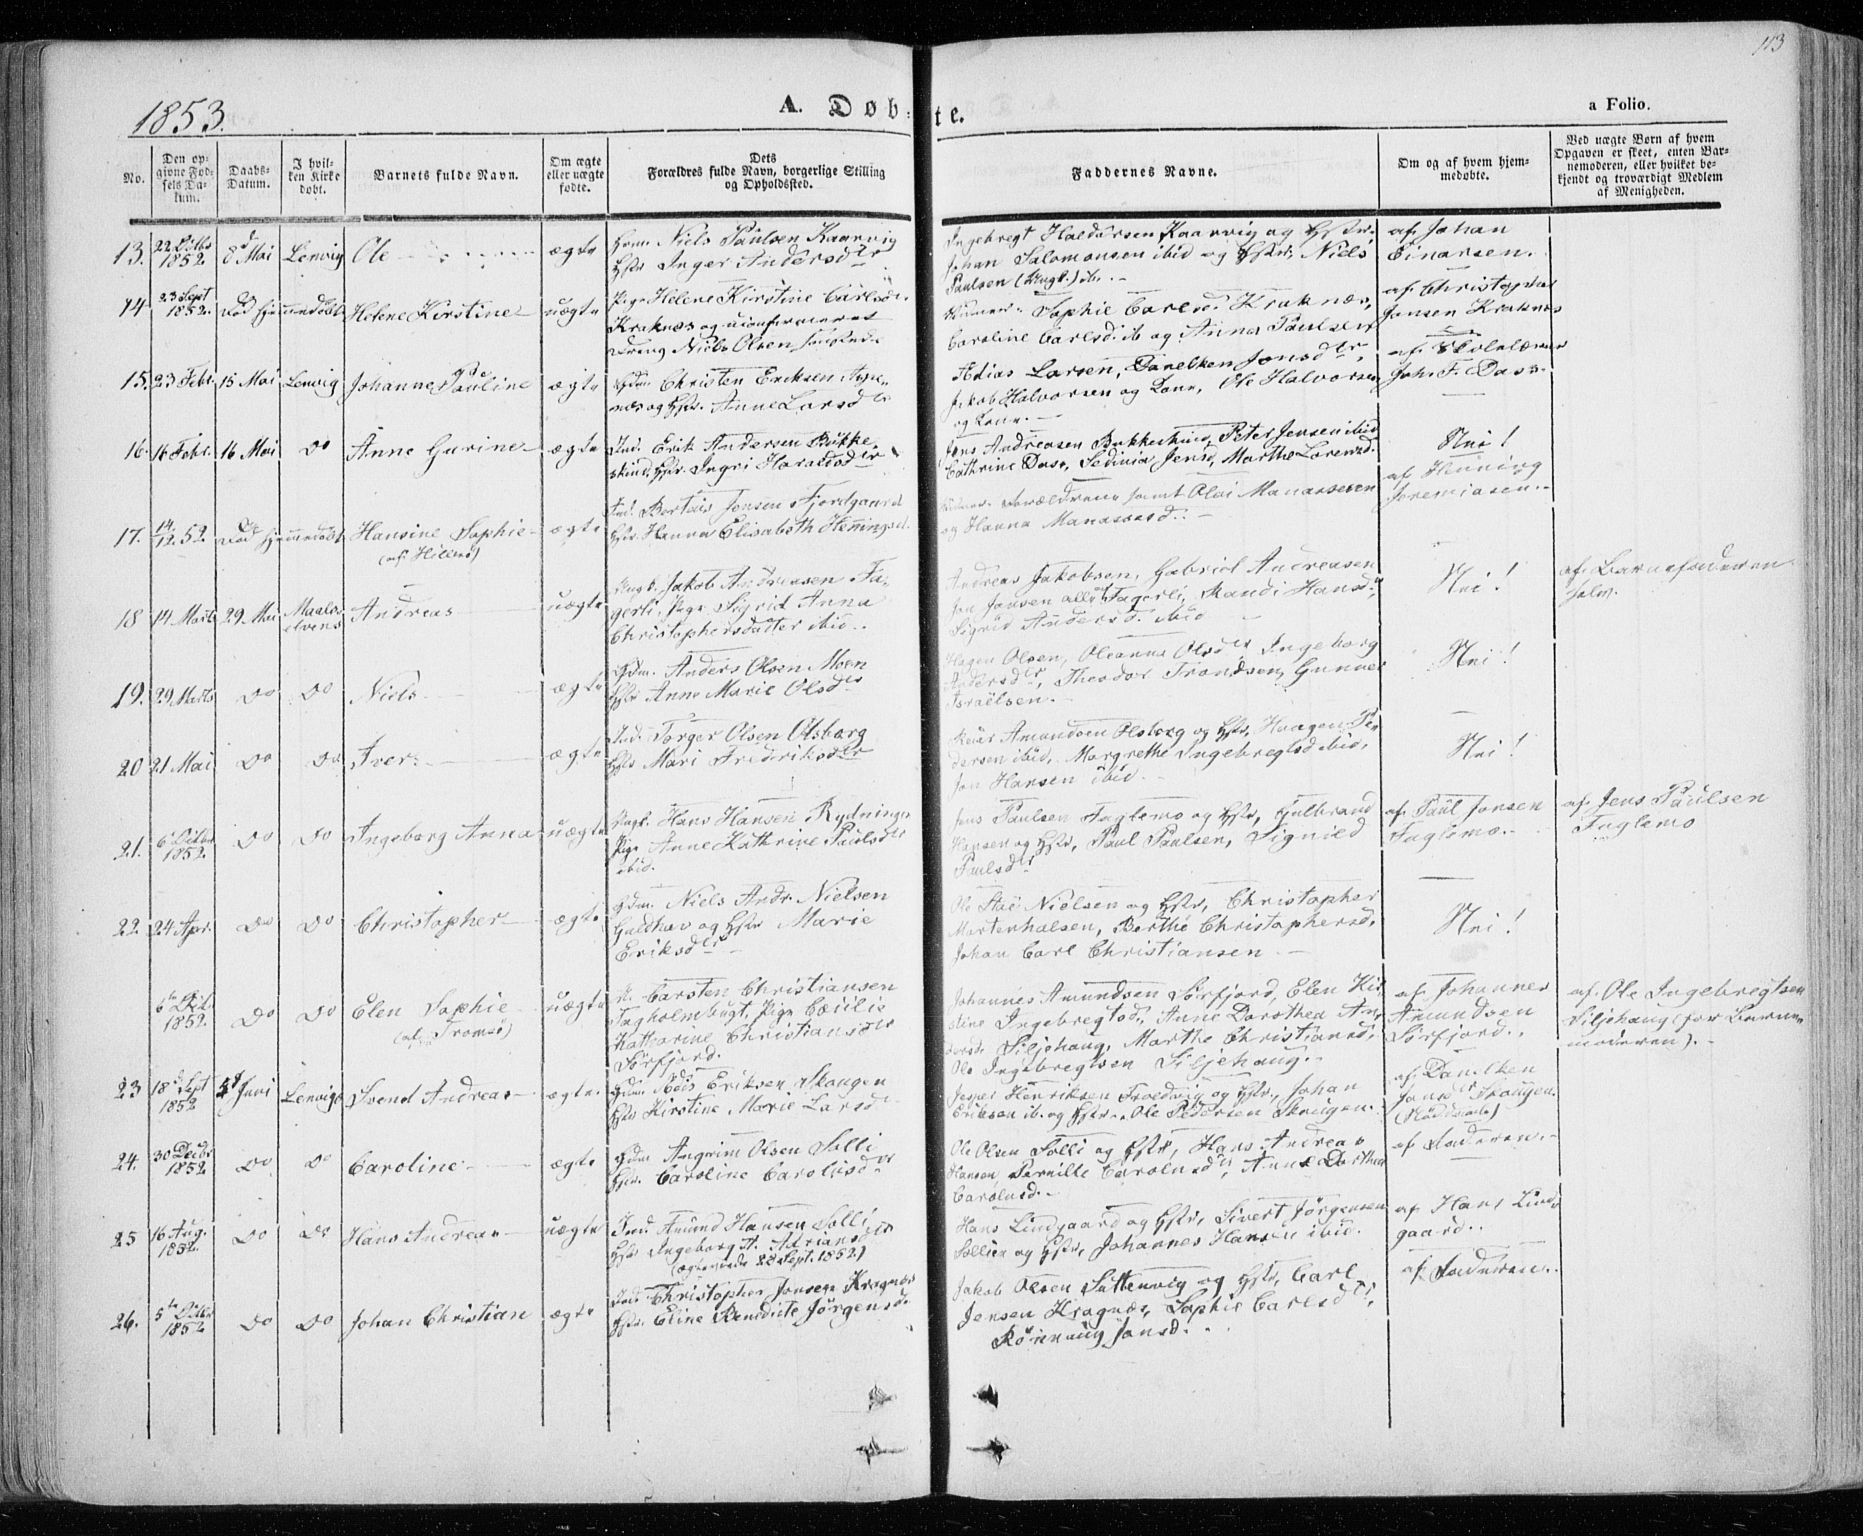 113
1853.
A. Døbte.
a Folio.
No.
Den opgivne Fødsels Datum.
Daabs-Datum.
I hvilken Kirke døbt.
Barnets fulde Navn.
Om ægte eller uægte født.
Dets Forældres fulde Navn, borgerlige Stilling og Opholdssted.
Faddernes Navne.
Om og af hvem hjemmedøbte.
Ved uægte Børn af hvem Opgaven er skeet, enten Barnemoderen, eller hvilket bekjendt og troværdigt Medlem af Menigheden.
13. 22 Octbr 1852 8d Mai Lenvig Ole ægte
Niels Paulsen Kaarvig
Hstr Inger Andersdtr
Ingebregt Haldorsen Kaarvig og Hstr.
Johan Salomonsen ibid og Hstr, Niels
Paulsen (Ungk.) ib.
af Johan
Einarsen.
14 23 Sept 1852. Død hjemmedøbt Helene Kirstine uægte
Pige Helene Kirstine Carlsd.
Kraknæs og uconfirmeret
Dreng Niels Olsen
Sophie Carlsd. Kraknæs,
Caroline Carlsd. ib og Anna Paulsen
af Christopher
Jensen Kraknæs
15. 23 Febr. 15 Mai Lenvig Johanne Pauline ægte
Gdm. Christen Eriksen
næs og Hstr. Anne Larsdtr
Adias Larsen, Danelken Jonsdtr,
Jakob Halvorsen og Kone, Ole Halvorsen
og Kone.
af Skolelærer
Joh. F. Dass.
16. 16 Febr. 16 Mai Do Anne Gurine ægte
Ind. Erik Andersen Bukke
skind, Hstr. Ingri Haraldsdtr
Jens Andreasen Bukkeskind, Peter Jensen ibid
Cathrine Dass, Sedinia Jensd, Marthe Lorentzd.
Nei!
17. 14/12.52. Død hjemmedøbt Hansine Sophie
(af Hillesø) ægte
Ind. Berteus Jensen Fjordgaard
Hstr. Hanna Elisabeth Hemingsd.
Forældrene samt Olai Manassesen
og Hanna Manassesd.
af Heming
Jeremiasen.
18 14 Marts 29 Mai Maalselvens Andreas uægte
Ungk. Jakob Andreasen Fa-
gerli, Pige Sigrid Anna
Christophersdatter ibid.
Andreas Jakobsen, Gabriel Andreasen
Jon Jansen alle Fagerli, Randi Hansd.,
Sigrid Andersd. ibid
Nei!
af Barnefaderen
selv.
19. 29 Marts Do Do Niels ægte
Gdm. Anders Olsen Moen
Hstr Anne Marie Olsdtr
Hagen Olsen, Oleanna Olsdtr Ingeborg
Andersdtr, Theodor Trondsen, Gunner
Israelsen.
Nei!
20 21 Mai Do Do Iver ægte
Ind. Torger Olsen Olsborg
Hstr Mari Fredriksdtr
Amundsen Olsborg og Hstr, Haagen Pe-
dersen ibid, Margrethe Ingebregtsd ibid,
Jon Hansen ibid.
Nei!
21. 6 Octbr 1852. Do Do Ingeborg Anna uægte
Ungk. Hans Hansen Rydningen
Pige Anne Kathrine Paulsdtr
ibid.
Jens Paulsen Fuglemo og Hstr, Gulbrand
Hansen og Hstr, Paul Paulsen, Signild
Paulsdtr
af Paul Jensen
Fuglemo.
af Jens Paulsen
Fuglemo
22. 24 Apr. Do Do Christopher ægte
Gdm. Niels Andr. Nielsen
Guldhav og Hstr Marie
Eriksdtr
Ole Nielsen og Hstr, Christopher
Morterhalsen, Berthe Christophersd,
Johan Carl Christiansen
Nei!
6te Okt. 1852. Do Do Elen Sophie
(af Tromsø) uægte
Carsten Christiansen
Fagholmbugt, Pige Cecilie
Katharine Christiansdtr
Sørfjord.
Johannes Amundsen Sørfjord, Elen Kir-
stine Ingebregtsd, Anne Dorothea An-
dersd. Siljehaug, Marthe Christiansd,
Ole Ingebregtsen Siljehaug.
af Johannes
Amundsen
Sørfjord.
af Ole Ingebregtsen
Siljehaug (for Barne-
moderen).
23 18d Sept 1852 5d Juni Lenvigs Svend Andreas ægte
Gdm. Eriksen Skougen
Hstr Kirstine Marie Larsd
Jesper Henriksen Troedvig og Hstr, Johan
Eriksen ib. og Hstr. Ole Pedersen Skougen.
af Danelken
Jonsdtr Skougen.
24. 30 Decbr 1852 Do Do Caroline ægte
Gdm Angrim Olsen Solli
Hstr. Caroline Carolusdtr
Ole Olsen Solli og Hstr, Hans Andreas
Hansen, Pernille Carolusdtr, Anne Dorthea
Carolusd.
af Faderen.
25 16 Aug. 1852. Do Do Hans Andreas uægte
Ind. Amund Hansen Solli
Hstr Ingeborg A. Adriansdtr
(ægteviede 28 Sept. 1852.)
Hans Lindgaard og Hstr, Sivert Jørgensen
Sollien og Hstr, Johannes Hansen ibid.
af Hans Lind-
gaard.
26. 5te Octbr 1852 Do Do Johan Christian ægte
Ind. Christopher Jensen Kragnæs
Hstr. Eline Benedicte Jørgensd.
Jakob Olsen Suttenvig og Hstr, Carl
Jensen Kragnæs, Sophie Carlsdtr,
Rønnaug Jonsd.
af Faderen.